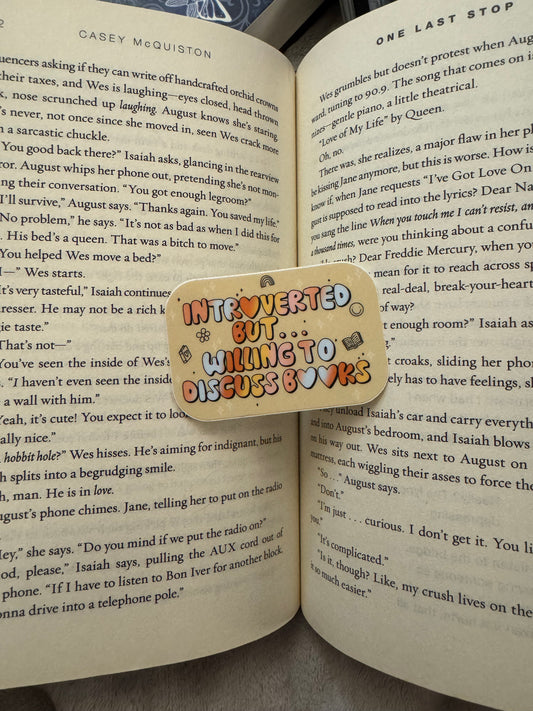 2
CASEY McQUISTON
uencers asking if they can write off handcrafted orchid crowns
their taxes, and Wes is laughing—eyes closed, head thrown
k, nose scrunched up laughing. August knows she's staring.
's never, not once since she moved in, seen Wes crack more
n a sarcastic chuckle.
You good back there?" Isaiah asks, glancing in the rearview
ror. August whips her phone out, pretending she's not mon-
ng their conversation. "You got enough legroom?"
I'll survive," August says. "Thanks again. You saved my life."
No problem," he says. "It's not as bad as when I did this for
s. His bed's a queen. That was a bitch to move."
You helped Wes move a bed?"
I—" Wes starts.
It's very tasteful," Isaiah continues
resser. He may not be a rich k
gie taste."
That's not—"
You've seen the inside of Wes'
. "I haven't even seen the inside
a wall with him."
Yeah, it's cute! You expect it to loo
ally nice."
hobbit hole?" Wes hisses. He's aiming for indignant, but his
h splits into a begrudging smile.
h, man. He is in love.
ugust's phone chimes. Jane, telling her to put on the radio
Hey," she says. "Do you mind if we put the radio on?"
od, please," Isaiah says, pulling the AUX cord out of
phone. "If I have to listen to Bon Iver for another block,
onna drive into a telephone pole."
INTROVERTED
BUT...
WILLING TO
DISCUSS BOOKS
ONE LAST STOP
Wes grumbles but doesn't protest when Aug
ward, tuning to 90.9. The song that comes on i
nines—gentle piano, a little theatrical.
"Love of My Life" by Queen.
Oh, no.
There was, she realizes, a major flaw in her pl
be kissing Jane anymore, but this is worse. How is
know if, when Jane requests "I've Got Love On
gust is supposed to read into the lyrics? Dear Na
you sang the line When you touch me I can't resist, an
a thousand times, were you thinking about a confu
? Dear Freddie Mercury, when you
mean for it to reach across sp
real-deal, break-your-heart
of way?
t enough room?" Isaiah as
croaks, sliding her pho
ely has to have feelings, sh
unload Isaiah's car and carry everythi
and into August's bedroom, and Isaiah blows
on his way out. Wes sits next to August on
mattress, each wiggling their asses to force th
"So . . ." August says.
"Don't."
"I'm just . . . curious. I don't get it. You li
you."
"It's complicated."
"Is it, though? Like, my crush lives on the
it so much easier."